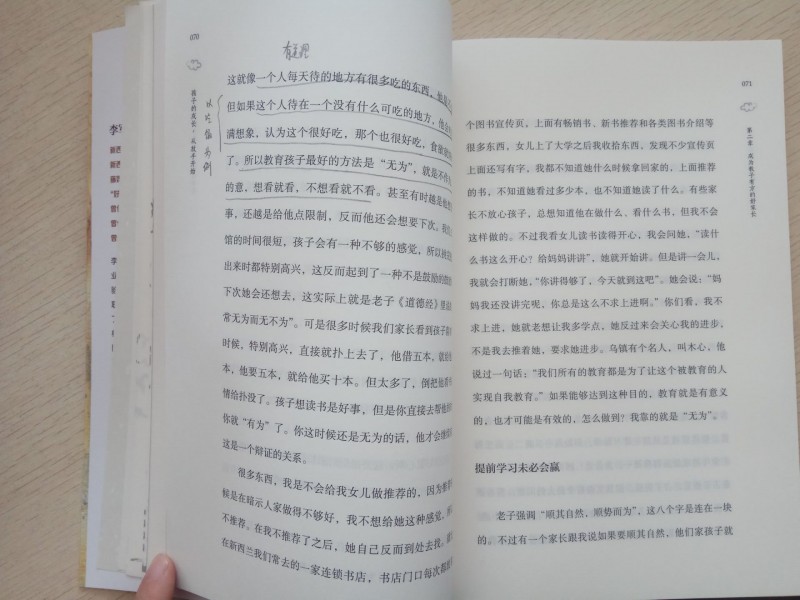 070
孩子的成长，从放手开始
以吃饭为例
这就像一个人每天待的地方有很多吃的东西，他
但如果这个人待在一个没有什么可吃的地方，他会
满想象，认为这个很好吃，那个也很好吃，食欲
了。所以教育孩子最好的方法是“无为”，就是不
的意，想看就看，不想看就不看。甚至有时越是
事，还越是给他点限制，反而他还会想要下次。我
馆的时间很短，孩子会有一种不够的感觉，所以
出来时都特别高兴，这反而起到了一种不是鼓励的
下次她会还想去，这实际上就是老子《道德经》里
常无为而无不为”。可是很多时候我们家长看到孩子
时候，特别高兴，直接就扑上去了，他借五本，就
本，他要五本，就给他买十本。但太多了，倒把他
情给扑没了。孩子想读书是好事，但是你直接去帮他
你就“有为”了。你这时候还是无为的话，他才会继
这是一个辩证的关系。
很多东西，我是不会给我女儿做推荐的，因为
候是在暗示人家做得不够好，我不想给她这种感觉，
不推荐。在我不推荐了之后，她自己反而到处去找。
在新西兰我们常去的一家连锁书店，书店门口每次都
071
第二章 成为教子有方的好家长
个图书宣传页，上面有畅销书、新书推荐和各类图书介绍等
很多东西，女儿上了大学之后我收拾东西，发现不少宣传页
上面还写有字，我都不知道她什么时候拿回家的，上面推荐
的书，不知道她看过多少本，也不知道她读了什么。有些家
长不放心孩子，总想知道他在做什么、看什么书，但我不会
这样做的。不过我看女儿读书读得开心，我会问她，“读什
么书这么开心？给妈妈讲讲”，她就开始讲。但是讲一会儿，
我就会打断她，“你讲得够了，今天就到这吧”。她会说：“妈
妈我还没讲完呢，你总是这么不求上进啊。”你们看，我不
求上进，她就老想让我多学点，她反过来会关心我的进步，
不是我去推着她，要求她进步。乌镇有个名人，叫木心，他
说过一句话：“我们所有的教育都是为了让这个被教育的人
实现自我教育。”如果能够达到这种目的，教育就是有意义
的，也才可能是有效的，怎么做到？我靠的就是“无为”。
提前学习未必会赢
老子强调“顺其自然，顺势而为”，这八个字是连在一块
的。不过有一个家长跟我说如果要顺其自然，他们家孩子就